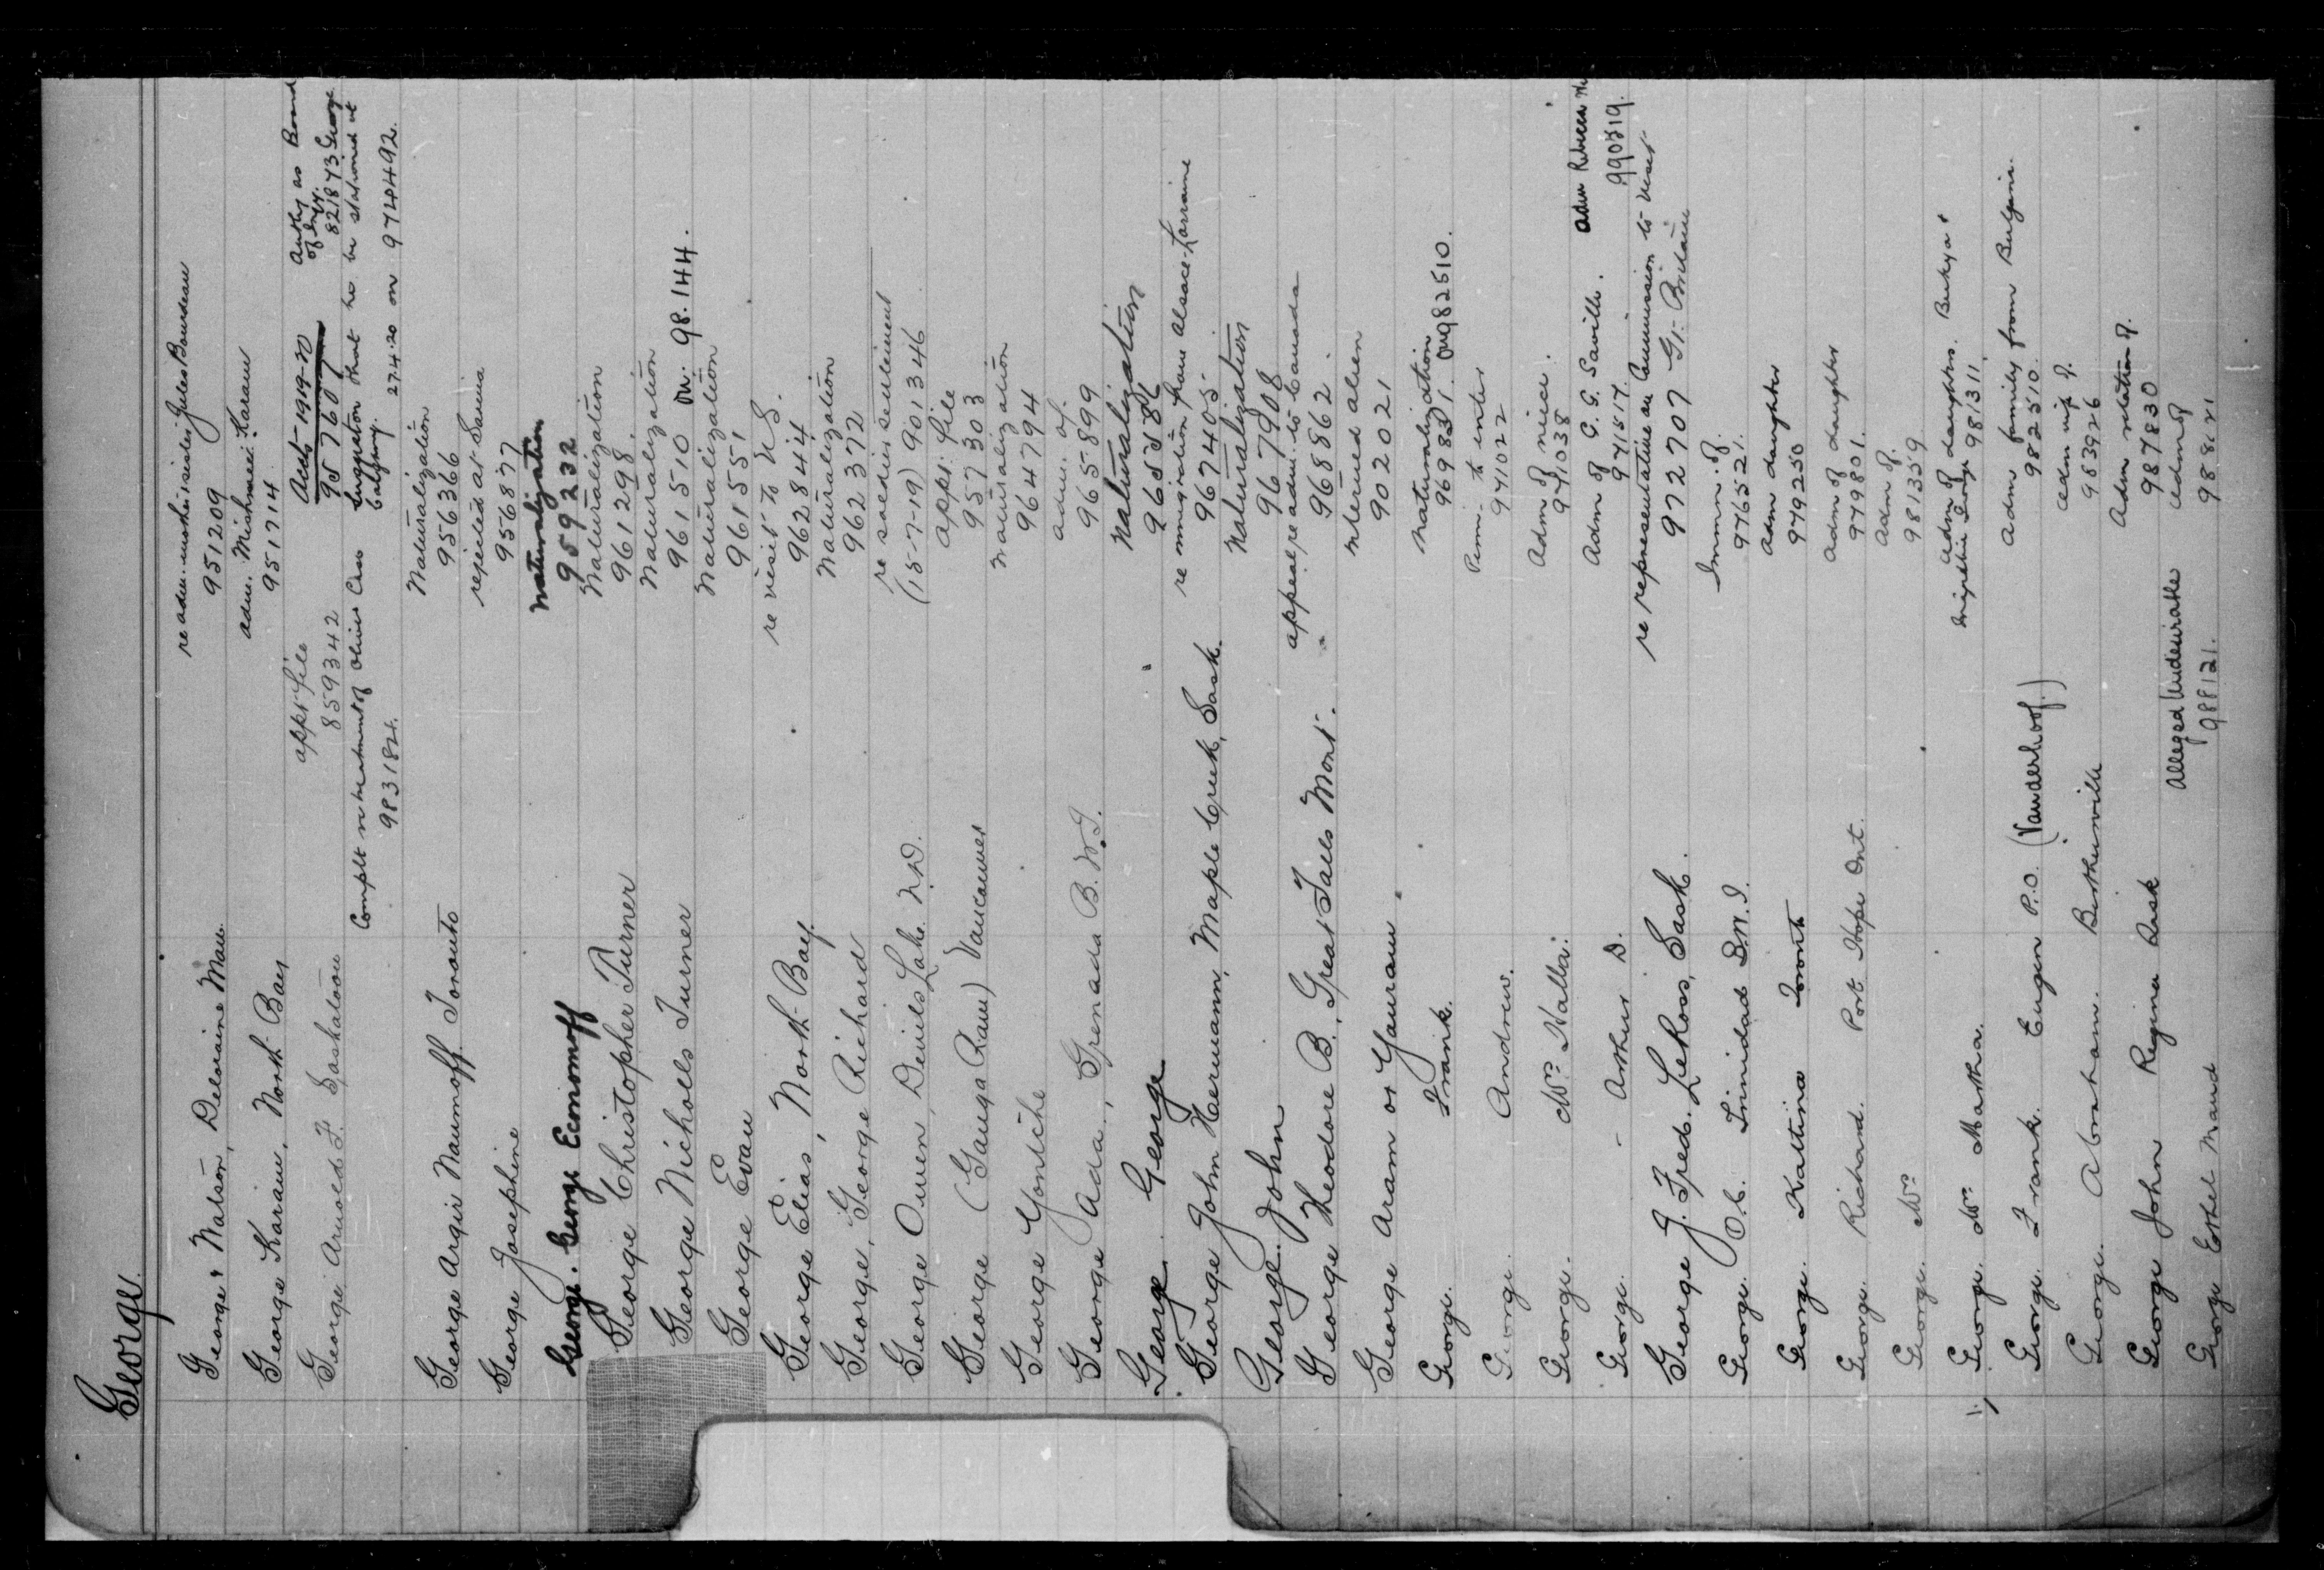 George.
George & Watson, Deloraine Man. re adm. mother & sister Jules Bourdeau
951209
George Karam, North Bay adm. Mishmeei Karam
951714
George Arnold F. Saskatoon appt. file Acct 1919-20 Author as Board
859342 957607 821873 George
Complt re treatment of Olivier Case Suggestion that he be stationed at
983182 Calgary. 27.4.20 on 974492.
George Argir Naumoff Toronto Naturalization
956366
George Josephine rejected at Sarnia
956877
George. George Economoff Naturalization
959232
George Christopher Turner Naturalization
961298.
George Nicholls Turner Naturalization
961510 on. 98.144.
George Evan Naturalization
961551
George Elias, North Bay. re visit to U.S.
962844
George, George Richard Naturalization
962372
George Owen, Devils Lake N.D. re soldier settlement
(15-7-19) 901346
George (Ganga Ram) Vancouver appt. file
957303
George Yontche Naturalization
964794
George Ada, Grenada B.W.I. adm. of.
965899
George George Naturalization
George John Hermann, Maple Creek, Sask. re immigration from Alsace-Lorraine
967405
George. John Naturalization
967908
George Theodore B., Great Falls Mont. appeal re adm. to Canada
968862.
George Aram or Yauram Interned alien
902021
George. Frank. Naturalization
on 982510.
George. Andrew. Perm. to enter
971022
George. Mrs Walla. Adm of niece.
971038
George. Arthur D. Adm of G. G. Saville. Adm Rebecca
971517. 990819.
George J. Fred. LeRoss, Sask. re representative on Commission to visit
972707 Gt. Britain
George. O.C. Trinidad B.W.I. Immi. of.
976521.
George. Kattina Toronto Adm daughter
979250
George. Richard. Port Hope Ont. Adm of daughter
979801.
George. Mrs Adm of.
981359
George. Mrs Martha. Adm of daughters.
981311.
George. Frank. Eugen P.O. (Vanderhoof.) Adm family from Bulgaria.
982510.
George. Abraham. Berthierville Adm wife of.
983926
George John Regina Sask Adm relation of.
987830
George Ethel Maud Alleged Undesirable Adm of
988121. 988121